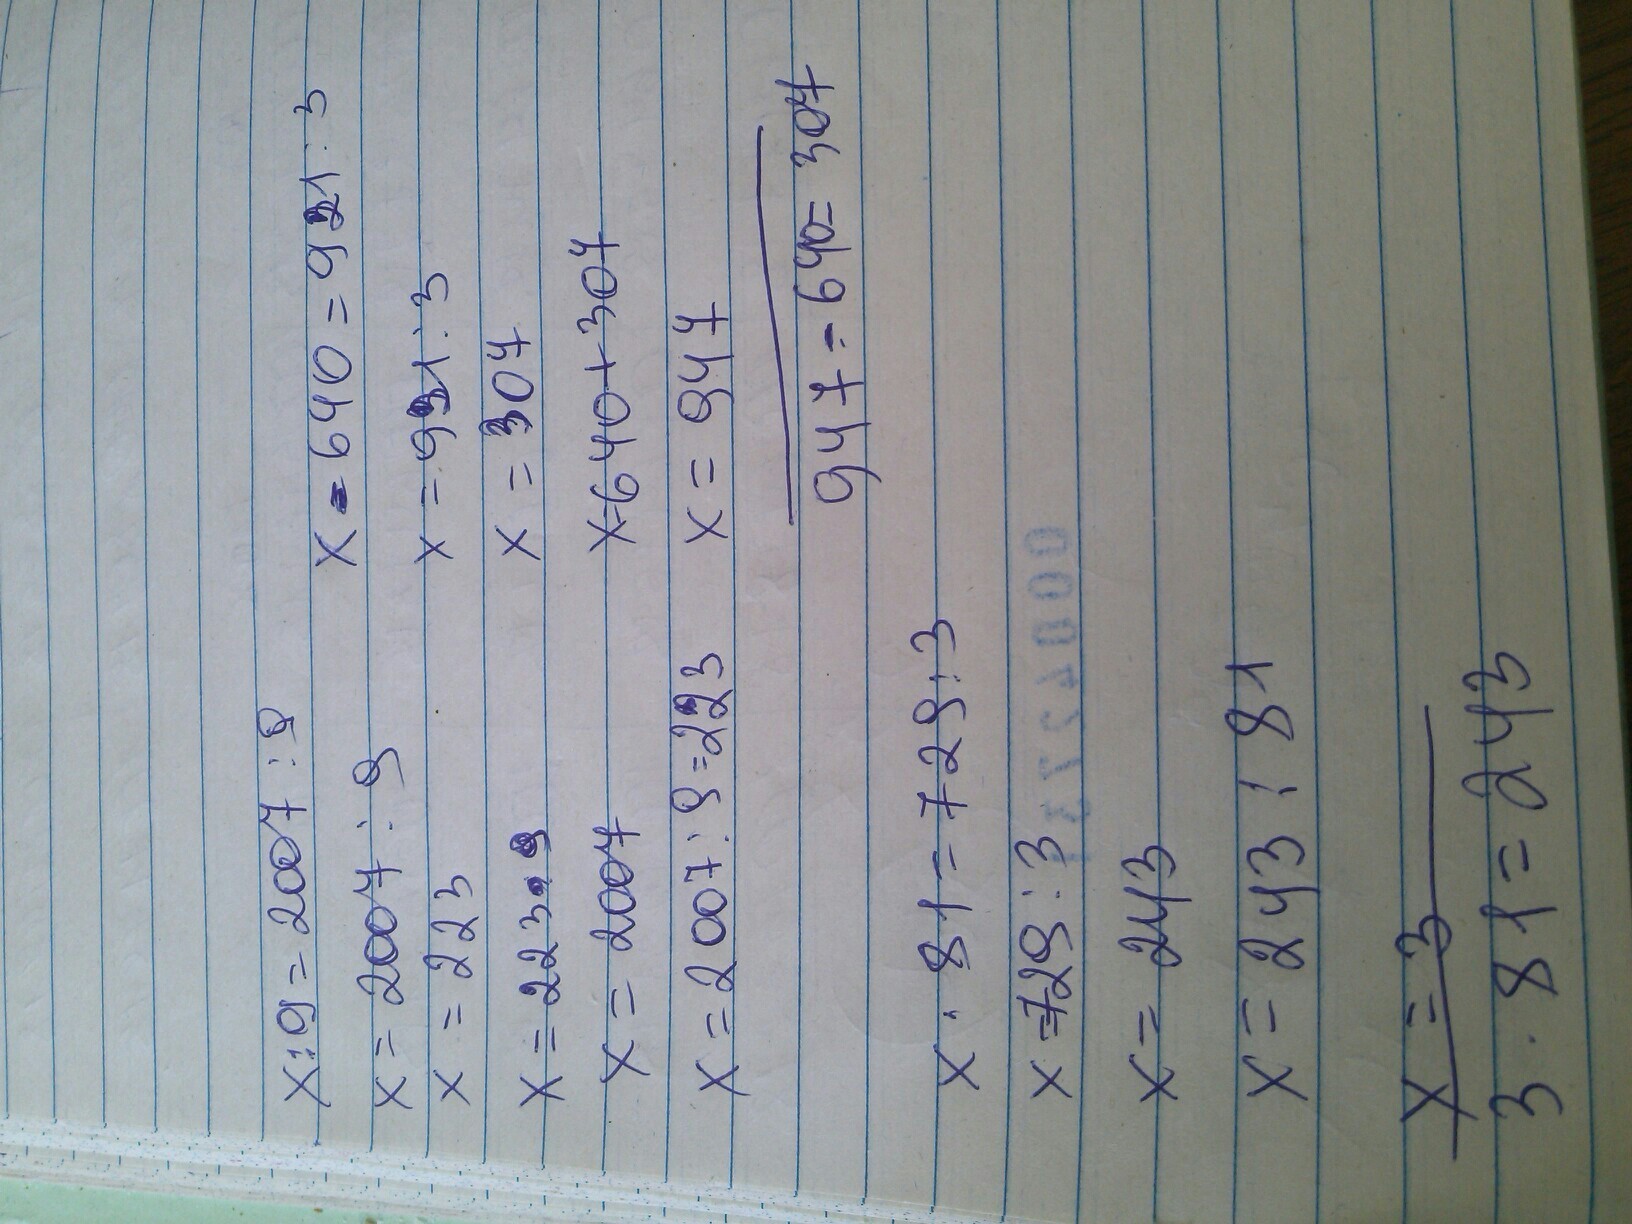 x:9=2007:9
x=2007:9
x=223
x=223·9
x=2007
x=2007:9=223
x-640=921:3
x=921:3
x=307
x=640+307
x=947
947-640=307
x·81=729:3
x=729:3
x=243
x=243:81
x=3
3·81=243